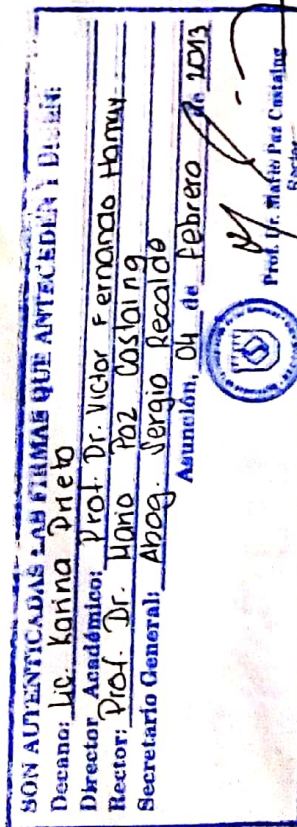 SON AUTENTICADAS LAS FIRMAS QUE ANTECEDEN Y DICEN:
Decano: Lic. Karina Prieto
Director Académico: Prof. Dr. Victor Fernando Hamuy
Rector: Prof. Dr. Mario Paz Castaing
Secretario General: Abog. Sergio Recalde
Asunción, 04 de Febrero de 2013
Prof. Dr. Mario Paz Castaing
Rector